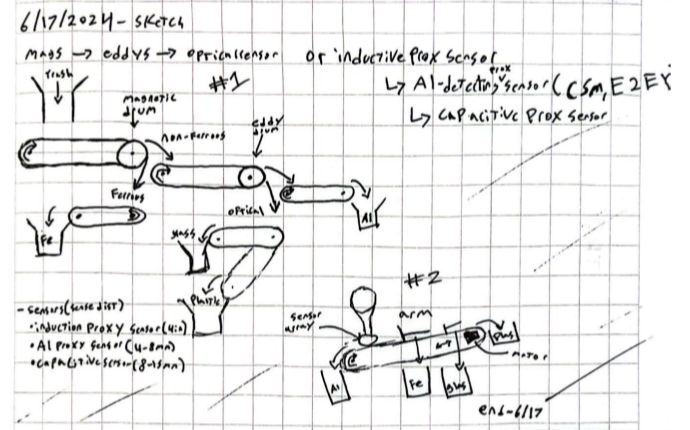 6/17/2024 - SKETCH
mags → eddys → optical sensor or inductive Prox sensor
↳ Al-detecting prox sensor (CSM, E2EY
↳ capacitive Prox sensor
trash
#1
magnetic drum
non-ferrous
eddy drum
Ferrous
optical
Al
Fe
glass
Plastic
#2
sensor array
arm
Plas
motor
Al
Fe
glas
- sensors (sense dist)
• induction Proxy sensor (4in)
• Al Proxy sensor (4-8mm)
• capacitive sensor (8-15mm)
end-6/17